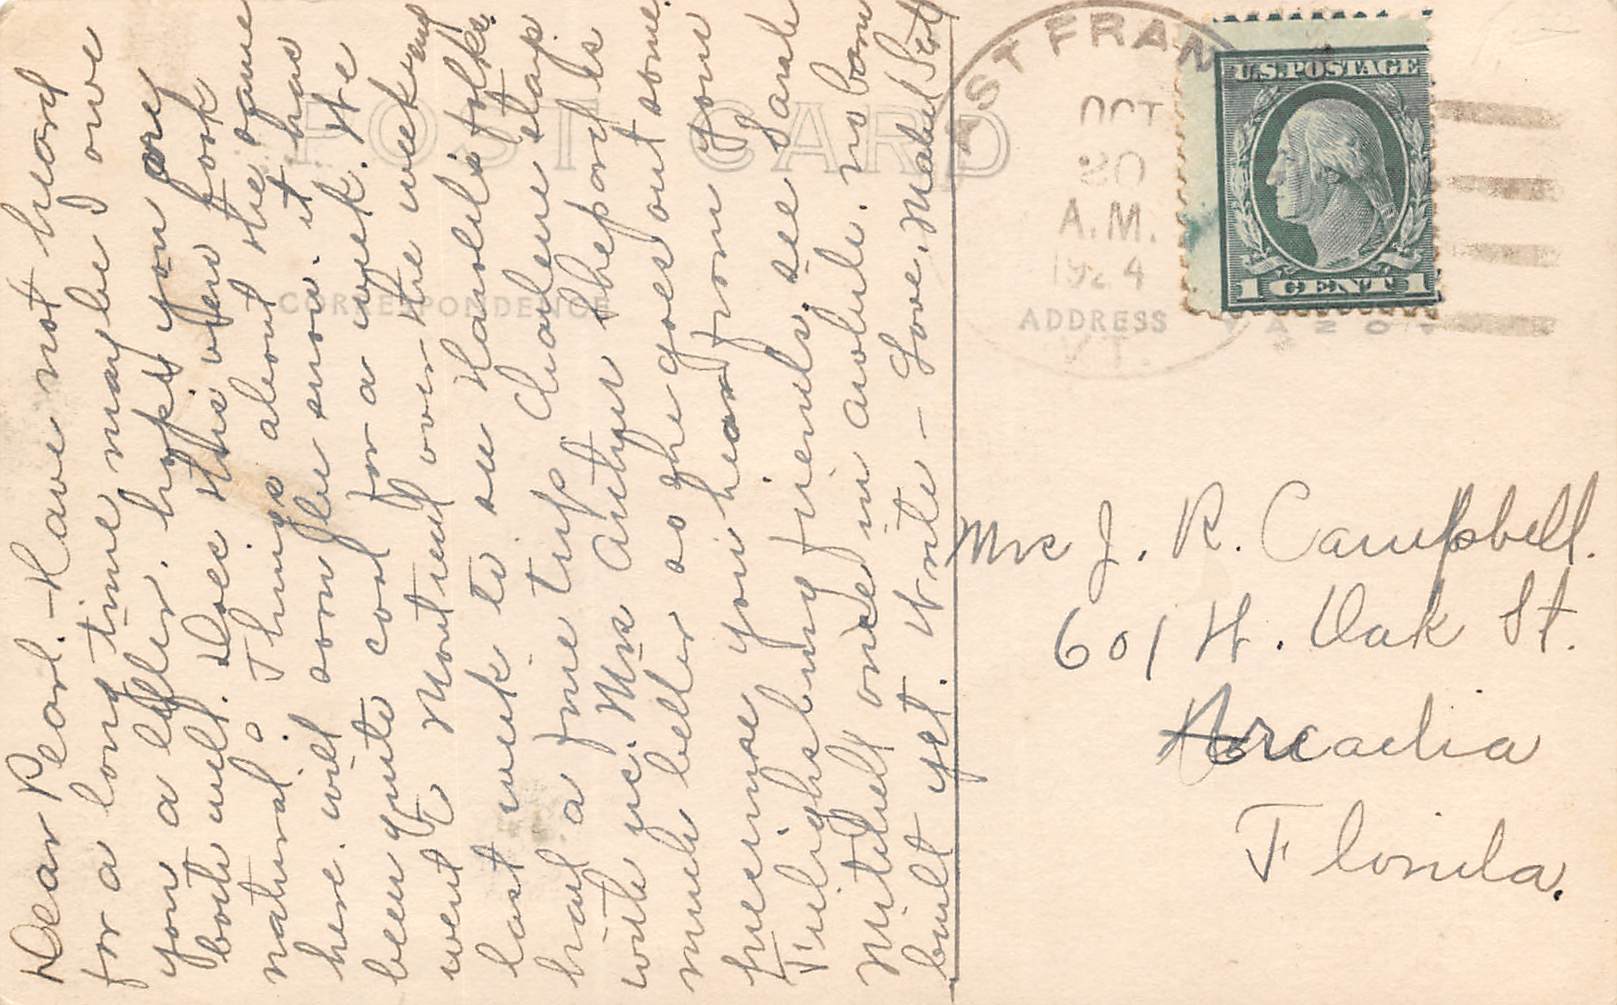 Dear Pearl. - Have not heard
for a long time maybe I owe
you a letter. hope you are
both well. Does this view look
natural? Things about the same
here. will soon fly snow. it has
been quite cool for a week. We
went to Montreal over the week end
last week to see Harold's folks.
had a fine trip. Charlene stays
with us. Mrs Arthur Shepard is
much better so she goes out some.
presume you hear from your
Finleighsburg friends. see Sarah
Mitchell once in awhile. no barn
built yet. Write - Love, Mabel
POST CARD
CORRESPONDENCE
ADDRESS
ST FRAN
OCT
20
A.M.
1924
VT.
U.S. POSTAGE
1 CENT 1
Mrs J. R. Campbell.
601 W. Oak St.
Arcadia
Florida.